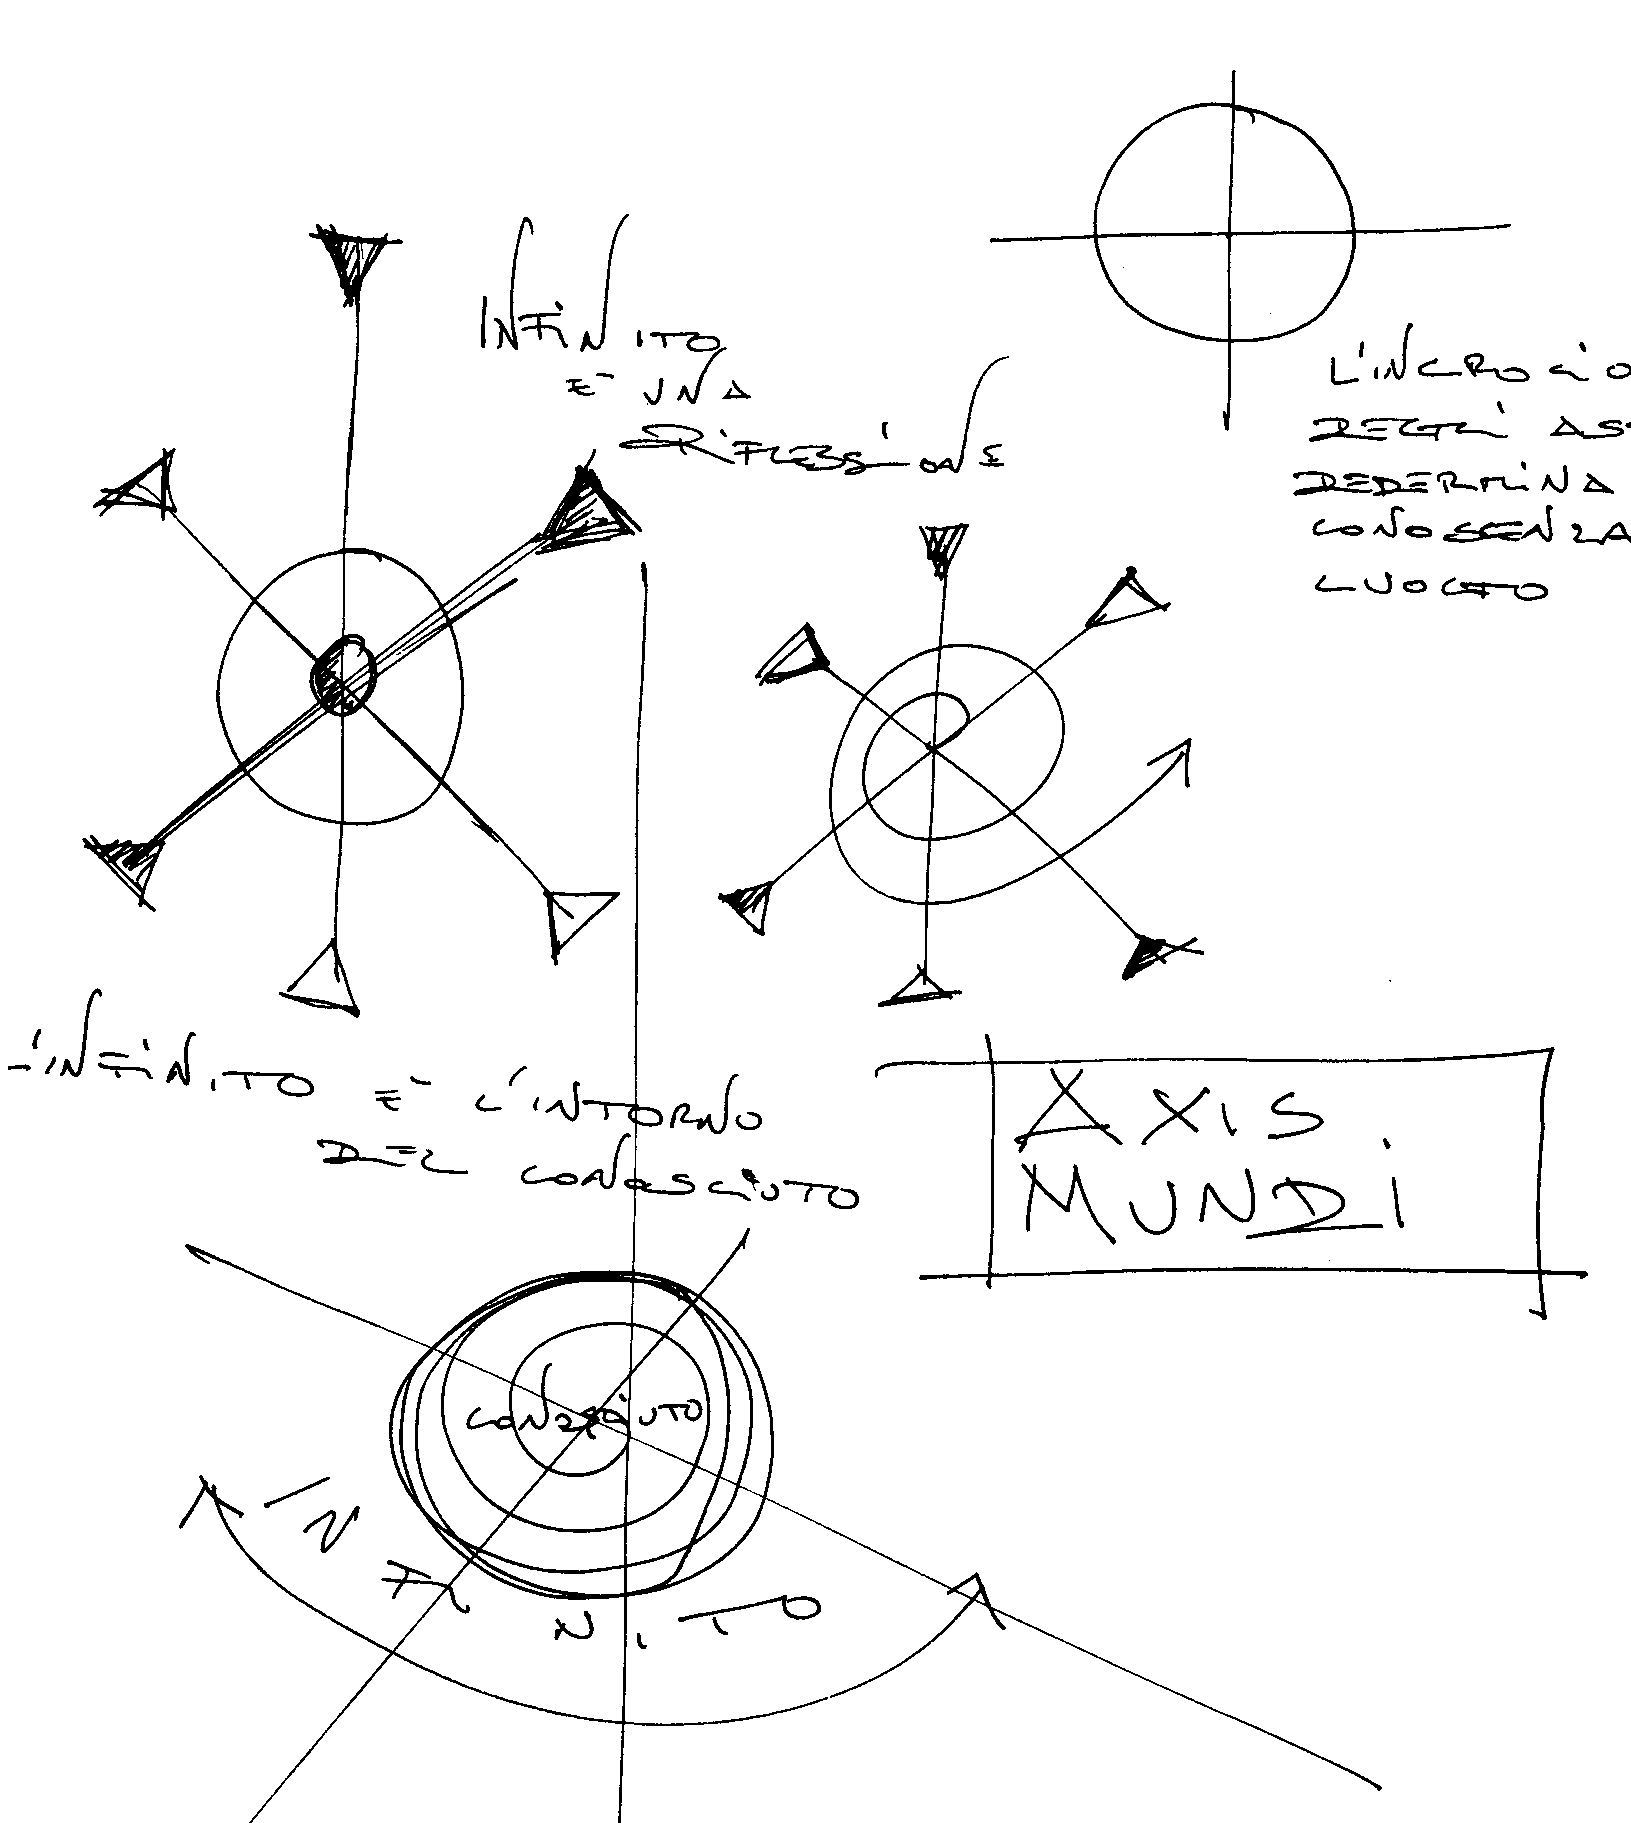 INFINITO
E' UNA
RIFLESSIONE
L'INCROCIO
DEGLI AS
DEDERMINA
CONOSCENZA
LUOGO
L'INFINITO E' L'INTORNO
DEL CONOSCIUTO
AXIS
MUNDI
CONOSCIUTO
INFINITO